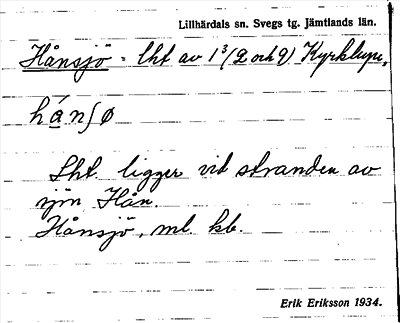 Lillhärdals sn. Svegs tg. Jämtlands län.
Hånsjö = lht av 1³ (2 och 9) Kyrkbyn,
hánʃø
Lht. ligger vid stranden av
sjön Hån.
Hånsjö, ml. kb.
Erik Eriksson 1934.